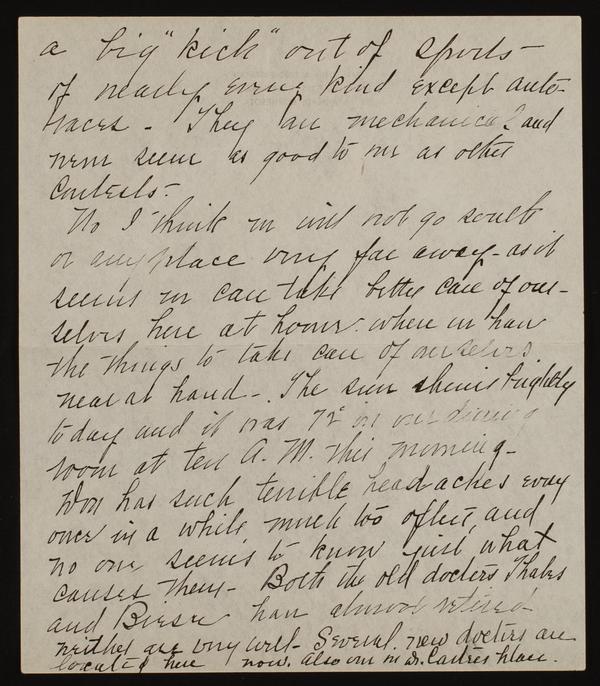 a big "kick" out of sports -
of nearly every kind except auto-
races - They are mechanical and
never seem as good to me as other
contests -
No I think we will not go south
or any place very far away - as it
seems we can take better care of our-
selves here at home where we have
the things to take care of ourselves
near at hand - The sun shines brightly
today and it was 72° in our dining
room at ten A. M. this morning -
Don has such terrible headaches every
once in a while, much too often, and
no one seems to know just what
causes them - Both the old doctors
and have almost retired -
neither are very well - Several new doctors are
located here now. Also one in Dr. place.